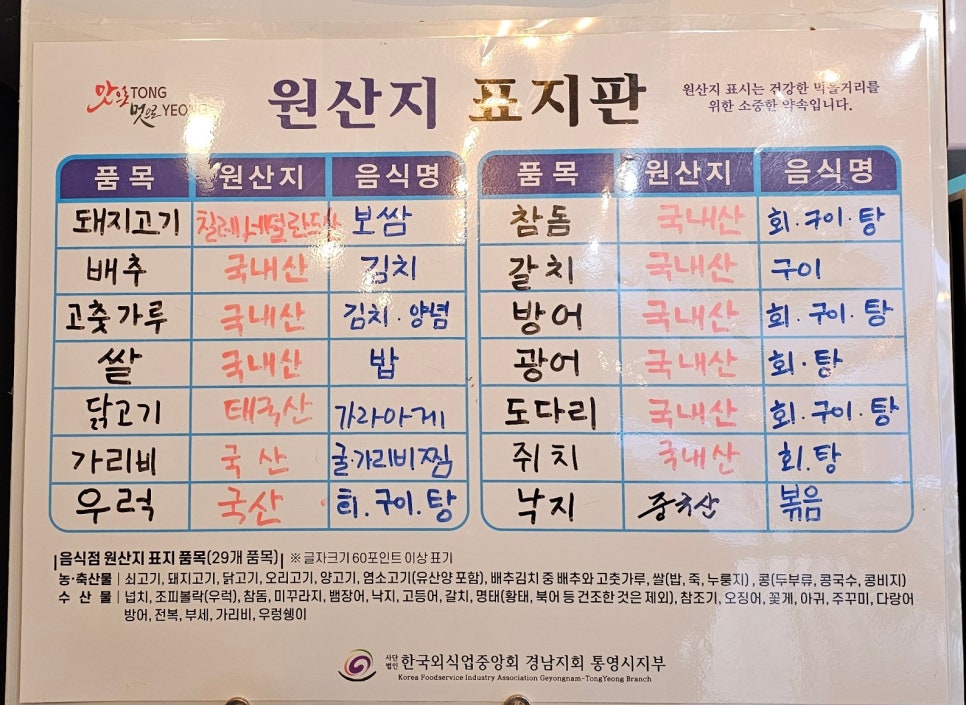 맛으로TONG
멋으로YEONG
원산지 표지판
원산지 표시는 건강한 먹을거리를
위한 소중한 약속입니다.
품목 원산지 음식명
돼지고기 칠레,네덜란드산 보쌈
배추 국내산 김치
고춧가루 국내산 김치·양념
쌀 국내산 밥
닭고기 태국산 가라아게
가리비 국산 굴·가리비찜
우럭 국산 회.구이.탕
품목 원산지 음식명
참돔 국내산 회·구이·탕
갈치 국내산 구이
방어 국내산 회·구이·탕
광어 국내산 회·탕
도다리 국내산 회·구이·탕
쥐치 국내산 회.탕
낙지 중국산 볶음
음식점 원산지 표지 품목(29개 품목) ※ 글자크기 60포인트 이상 표기
농·축산물 쇠고기, 돼지고기, 닭고기, 오리고기, 양고기, 염소고기(유산양 포함), 배추김치 중 배추와 고춧가루, 쌀(밥, 죽, 누룽지), 콩(두부류, 콩국수, 콩비지)
수 산 물 넙치, 조피볼락(우럭), 참돔, 미꾸라지, 뱀장어, 낙지, 고등어, 갈치, 명태(황태, 북어 등 건조한 것은 제외), 참조기, 오징어, 꽃게, 아귀, 주꾸미, 다랑어
방어, 전복, 부세, 가리비, 우렁쉥이
사단법인 한국외식업중앙회 경남지회 통영시지부
Korea Foodservice Industry Association Geyongnam-TongYeong Branch